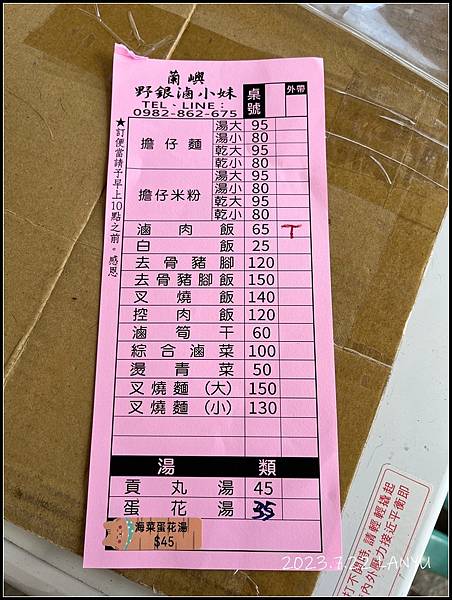 蘭嶼
野銀滷小妹
TEL、LINE：
0982-862-675
桌號
外帶
★訂便當請予早上10點之前。感恩
擔仔麵
湯大 95
湯小 80
乾大 95
乾小 80
擔仔米粉
湯大 95
湯小 80
乾大 95
乾小 80
滷肉飯 65 T
白飯 25
去骨豬腳 120
去骨豬腳飯 150
叉燒飯 140
控肉飯 120
滷筍干 60
綜合滷菜 100
燙青菜 50
叉燒麵（大） 150
叉燒麵（小） 130
湯類
貢丸湯 45
蛋花湯 35
海菜蛋花湯
$45
打不開時,請輕輕撬起
內外壓力接近平衡即